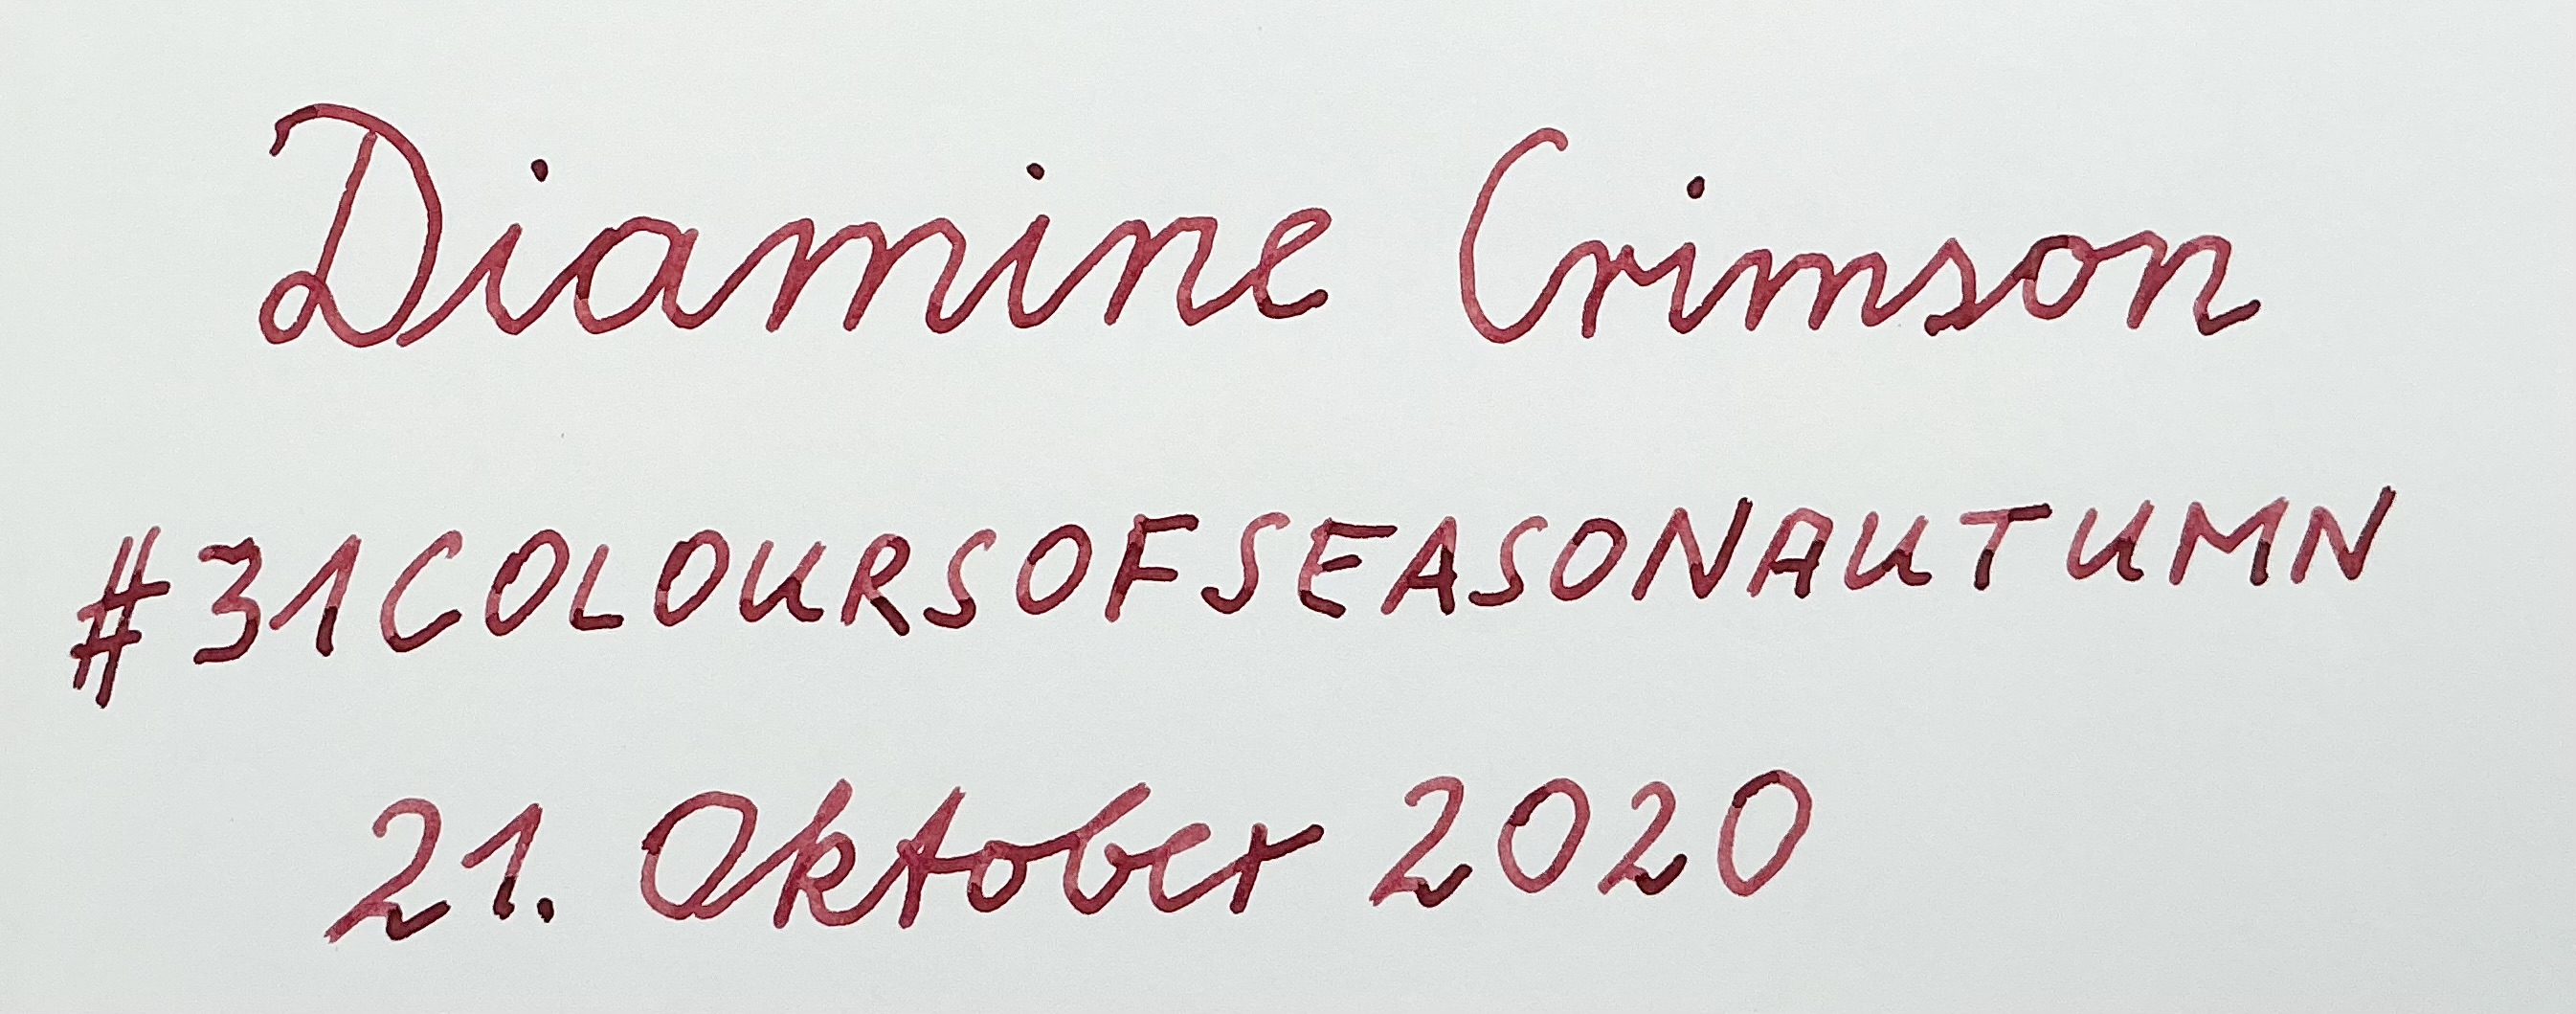 Diamine Crimson
#31COLOURSOFSEASONAUTUMN
21. Oktober 2020